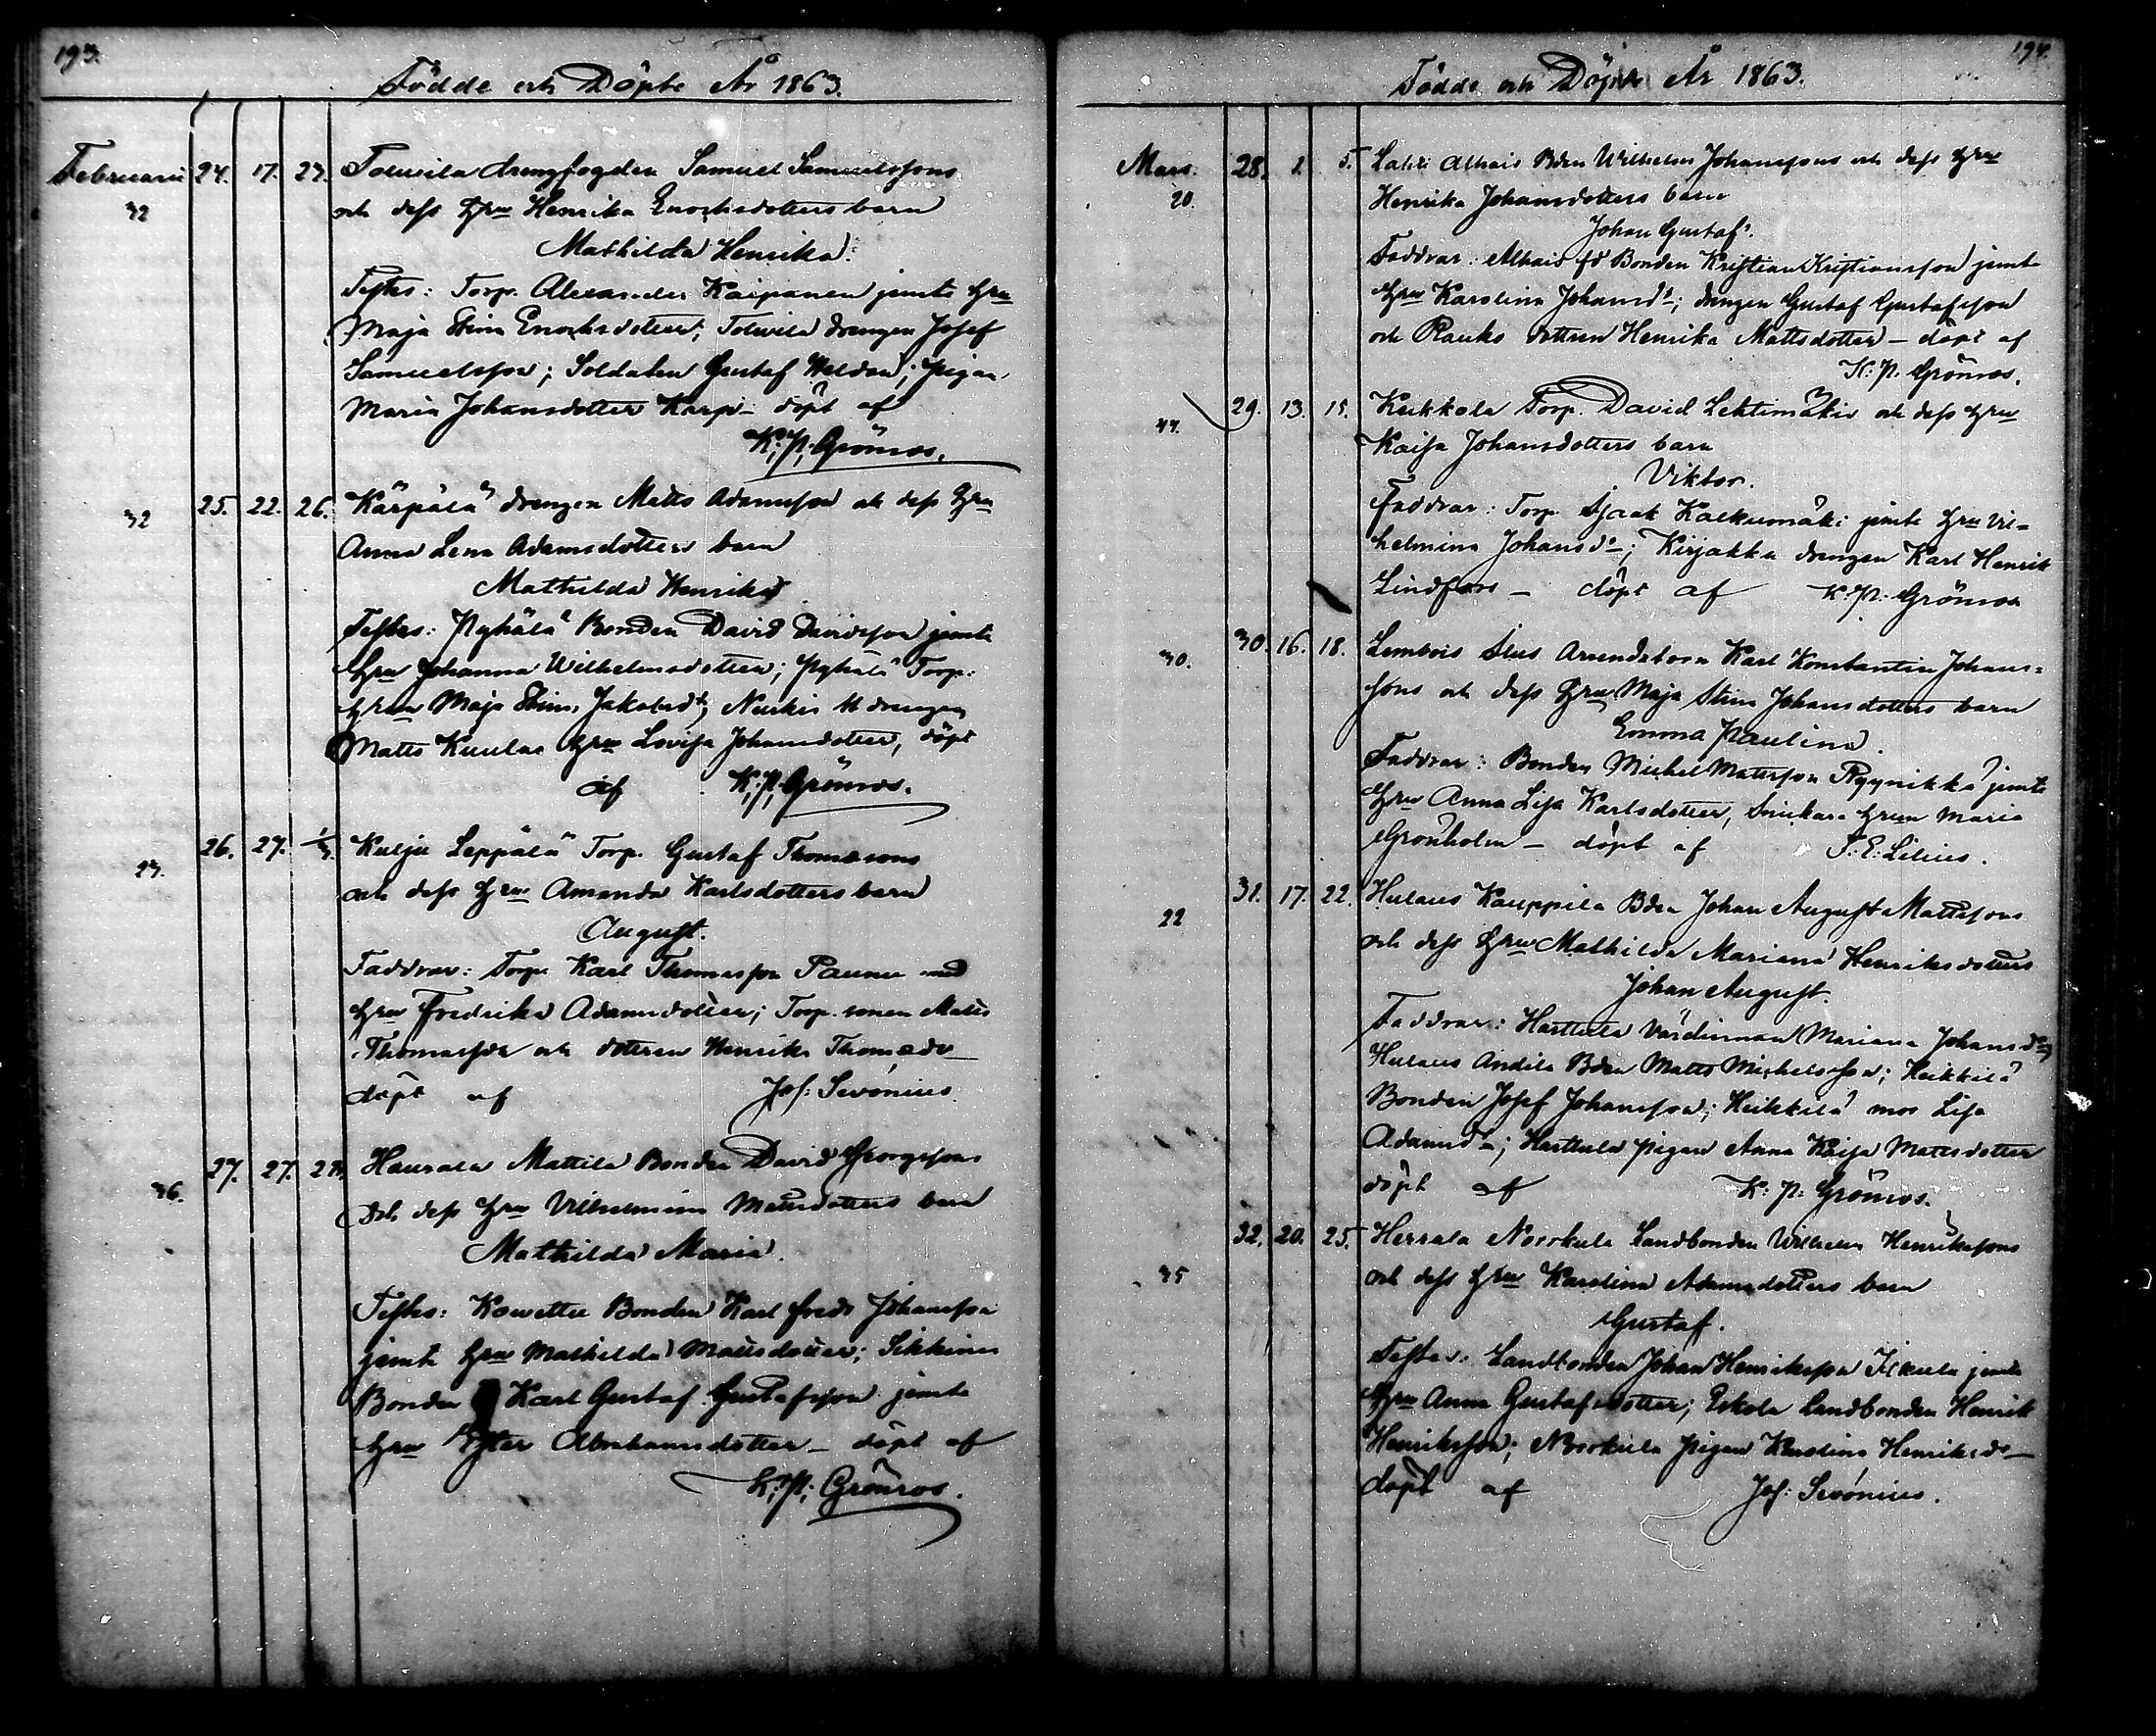 193.
Födde och Döpte År 1863.
Februari 24. 17. 23. Tolvila drengfogden Samuel Samuelssons
32 och dess Hru Henrika Enochsdotters barn
Mathilda Henrika.
Testes: Torp. Alexander Kaipanen jemte Hru
Maja Stina Enochsdotter; Tolvila drengen Josef
Samuelsson; Soldaten Gustaf; pigan
Maria Johansdotter Karpi - döpt af
K: P: Grönroos.
32 25. 22. 26. Kärpälä drengen Matts Adamsson och dess Hru
Anna Lena Adamsdotters barn
Mathilda Henrika
Testes: Pyhälä Bonden David Davidsson jemte
Hru Johanna Wilhelmsdotter; Pyhälä Torp:
Hrun Maja Stina Jakobsdr; drengen
Matts Hru Lovisa Johansdotter, döpt
af K: P: Grönroos.
23. 26. 27. 1/3. Kulju Leppälä Torp. Gustaf Thomæsons
och dess Hru Amanda Karlsdotters barn
August.
Faddrar: Torp. Karl Thomasson Paunu med
Hru Fredrika Adamsdotter; Torp. sonen Matts
Thomasson och dottren Henrika Thomædr
döpt af Jos: Sevonius.
36. 27. 27. Haurala Mattila Bonden David Georgssons
och dess Hru Vilhelmina Mattsdotters barn
Mathilda Maria.
Testes: Bonden Karl Fredr Johansson
jemte Hru Mathilda Mattsdotter; Sikkinen
Bonden Karl Gustaf Gustafsson jemte
Hru Ester Abrahamsdotter - döpt af
K: P: Grönroos.
194.
Födde och Döpte År 1863.
Mars. 28. 1. 5. Lahti Alhais Bden Wilhelm Johanssons och dess Hru
20. Henrika Johansdotters barn
Johan Gustaf.
Faddrar: Alhais fd Bonden Kristian Kristiansson jemte
Hru Karolina Johansdr; drengen Gustaf Gustafsson
och Rauks dottren Henrika Mattsdotter - döpt af
K: P: Grönroos.
44. 29. 13. 15. Kukkola Torp. David Lehtimäkis och dess Hru
Kaisa Johansdotters barn
Viktor.
Faddrar: Torp. Isaak jemte Hru Vil-
helmina Johansdr; drengen Karl Henrik
Lindfors - döpt af K: P: Grönroos
30. 30. 16. 18. Lembois Arrendatorn Karl Konstantin Johans-
sons och dess Hru Maja Stina Johansdotters barn
Emma Paulina.
Faddrar: Bonden Michel Mattsson Ryynikkä jemte
Hru Anna Lisa Karlsdotter, Snickare Hrun Maria
Grönholm - döpt af F: E: Lilius.
22 31. 17. 22. Hulaus Kauppila Bden Johan August Mattssons
och dess Hru Mathilda Mariana Henriksdotters
Johan August.
Faddrar: Harttula Värdinnan Mariana Johansdr;
Hulaus Andila Bden Matts Michelsson; Heikkilä
Bonden Josef Johansson; Heikkilä mor Lisa
Adamsdr; Harttula pigan Anna Kaisa Mattsdotter
döpt af K: P: Grönroos.
35 32. 20. 25. Herrala Norokula Landbonden Wilhelm Henrikssons
och dess Hru Karolina Adamsdotters barn
Gustaf.
Testes: Landbonden Johan Henriksson jemte
Hru Anna Gustafsdotter; Eskola Landbonden Henrik
Henriksson; Norokula pigan Karolina Henriksdr
döpt af Jos: Sevonius.